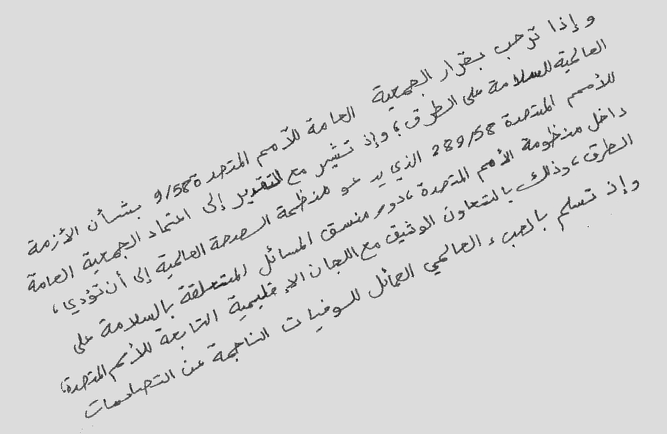 وإذا ترحب بقرار الجمعية العامة للأمم المتحدة 9/58 بشأن الأزمة
العالمية للسلامة على الطرق، وإذ تشير مع التقدير إلى اعتماد الجمعية العامة
للأمم المتحدة 289/58 الذي يدعو منظمة الصحة العالمية إلى أن تؤدي،
داخل منظومة الأمم المتحدة، دور منسق المسائل المتعلقة بالسلامة على
الطرق، وذلك بالتعاون الوثيق مع اللجان الإقليمية التابعة للأمم المتحدة،
وإذ تسلم بالعبء العالمي الهائل للوفيات الناجمة عن التصادمات